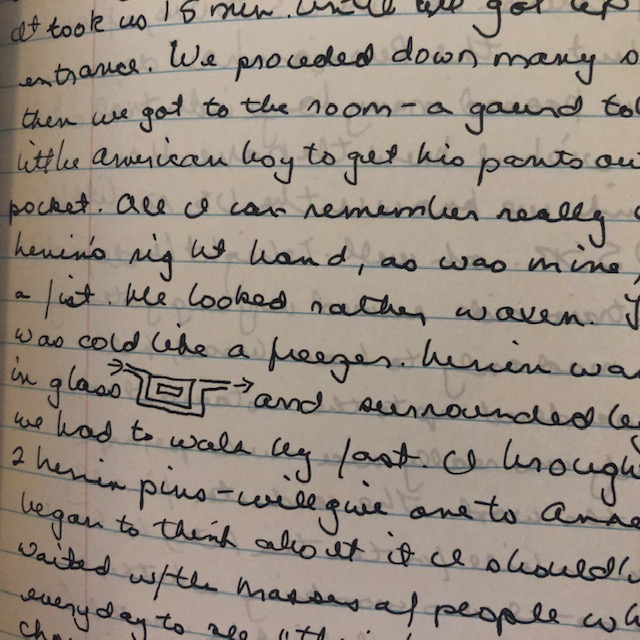 It took us 15 min. until we got up
entrance. We proceded down many s
then we got to the room - a gaurd tol
little American boy to get his pants out
pocket. All I can remember really
Lenin's right hand, as was mine,
a fist. He looked rather waxen.
was cold like a freezer. Lenin was
in glass and surrounded by
we had to walk by fast. I brough
2 Lenin pins - will give one to Anna
began to think about it I should
waited w/the masses of people wh
everyday to see "the